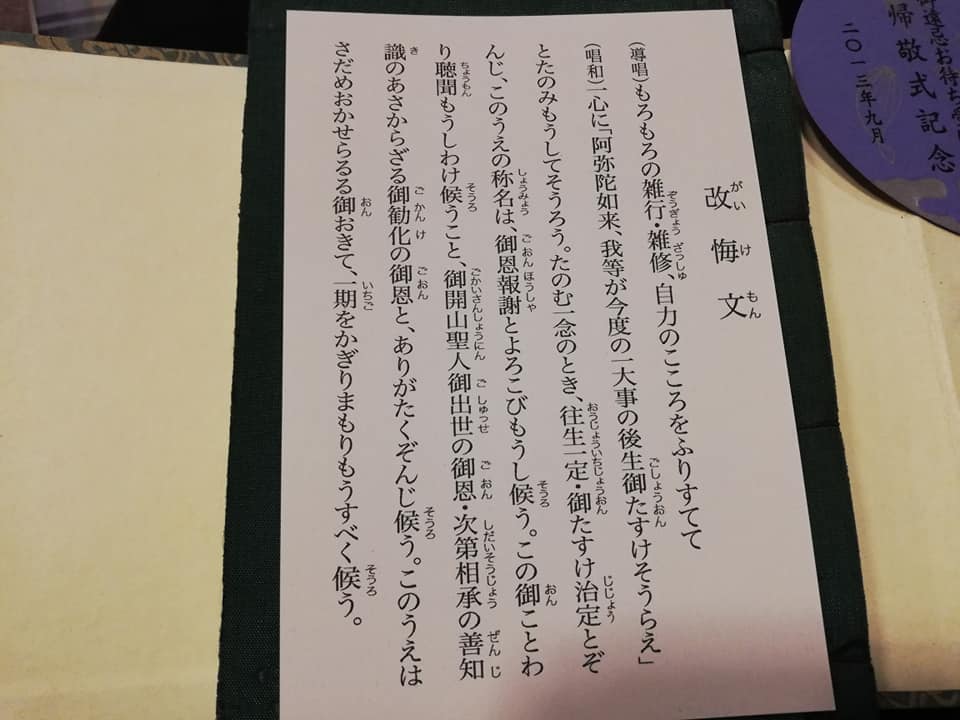 改悔文
(導唱)もろもろの雑行・雑修、自力のこころをふりすてて
(唱和)一心に「阿弥陀如来、我等が今度の一大事の後生御たすけそうらえ」
とたのみもうしてそうろう。たのむ一念のとき、往生一定・御たすけ治定とぞ
んじ、このうえの称名は、御恩報謝とよろこびもうし候う。この御ことわ
り聴聞もうしわけ候うこと、御開山聖人御出世の御恩・次第相承の善知
識のあさからざる御勧化の御恩と、ありがたくぞんじ候う。このうえは
さだめおかせらるる御おきて、一期をかぎりまもりもうすべく候う。
御遠忌お待ち受
帰敬式記念
二〇一三年九月